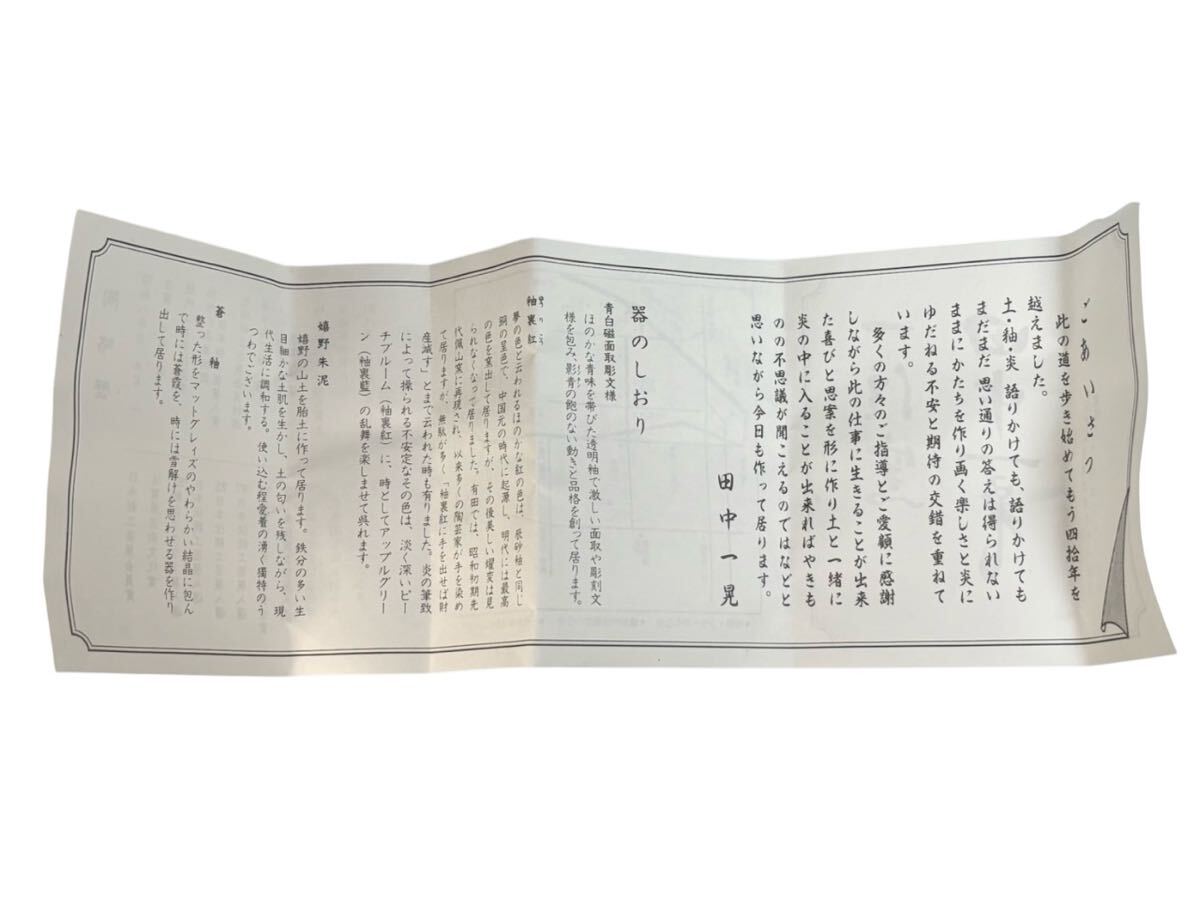 ごあいさつ
此の道を歩き始めてもう四拾年を
越えました。
土・釉・炎 語りかけても、語りかけても
まだまだ 思い通りの答えは得られない
ままにかたちを作り画く楽しさと炎に
ゆだねる不安と期待の交錯を重ねて
います。
多くの方々のご指導とご愛顧に感謝
しながら此の仕事に生きることが出来
た喜びと思案を形に作り土と一緒に
炎の中に入ることが出来ればやきも
のの不思議が聞こえるのではなどと
思いながら今日も作って居ります。
田中一晃
器のしおり
青白磁面取彫文様
ほのかな青味を帯びた透明釉で激しい面取や彫刻文
様を包み、影青の飽のない動きと品格を創って居ります。
釉裏紅
夢の色と云われるほのかな紅の色は、辰砂釉と同じ
銅の呈色で、中国元の時代に起源し、明代には最高
の色を窯出して居りますが、その後美しい燿変は見
られなくなって居りました。有田では、昭和初期先
代佩山窯に再現され、以来多くの陶芸家が手を染め
て居りますが、無駄が多く「釉裏紅に手を出せば財
産減す」とまで云われた時も有りました。炎の筆致
によって操られる不安定なその色は、淡く深いピー
チブルーム（釉裏紅）に、時としてアップルグリー
ン（釉裏藍）の乱舞を楽しませて呉れます。
嬉野朱泥
嬉野の山土を胎土に作って居ります。鉄分の多い生
目細かな土肌を生かし、土の匂いを残しながら、現
代生活に調和する。使い込む程愛着の湧く獨特のう
つわでございます。
蒼釉
整った形をマットグレイズのやわらかい結晶に包ん
で時には蒼霞を、時には雪解けを思わせる器を作り
出して居ります。